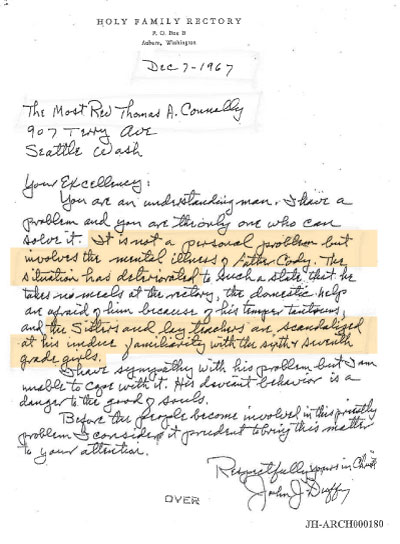 HOLY FAMILY RECTORY
P. O. Box B
Auburn, Washington
Dec 7-1967
The Most Rev Thomas A. Connolly
907 Terry Ave
Seattle Wash
Your Excellency:
You are an understanding man. I have a
problem and you are the only one who can
solve it. It is not a personal problem but
involves the mental illness of Father Cody. The
situation has deteriorated to such a state that he
takes no meals at the rectory, the domestic help
are afraid of him because of his temper tantrums,
and the Sisters and lay teachers are scandalized
at his undue familiarity with the sixth & seventh
grade girls.
I have sympathy with his problem but I am
unable to cope with it. His deviant behavior is a
danger to the good of souls.
Before the people become involved in this priestly
problem I consider it prudent to bring this matter
to your attention.
Respectfully yours in Christ
John J. Duffy
OVER
JH-ARCH000180